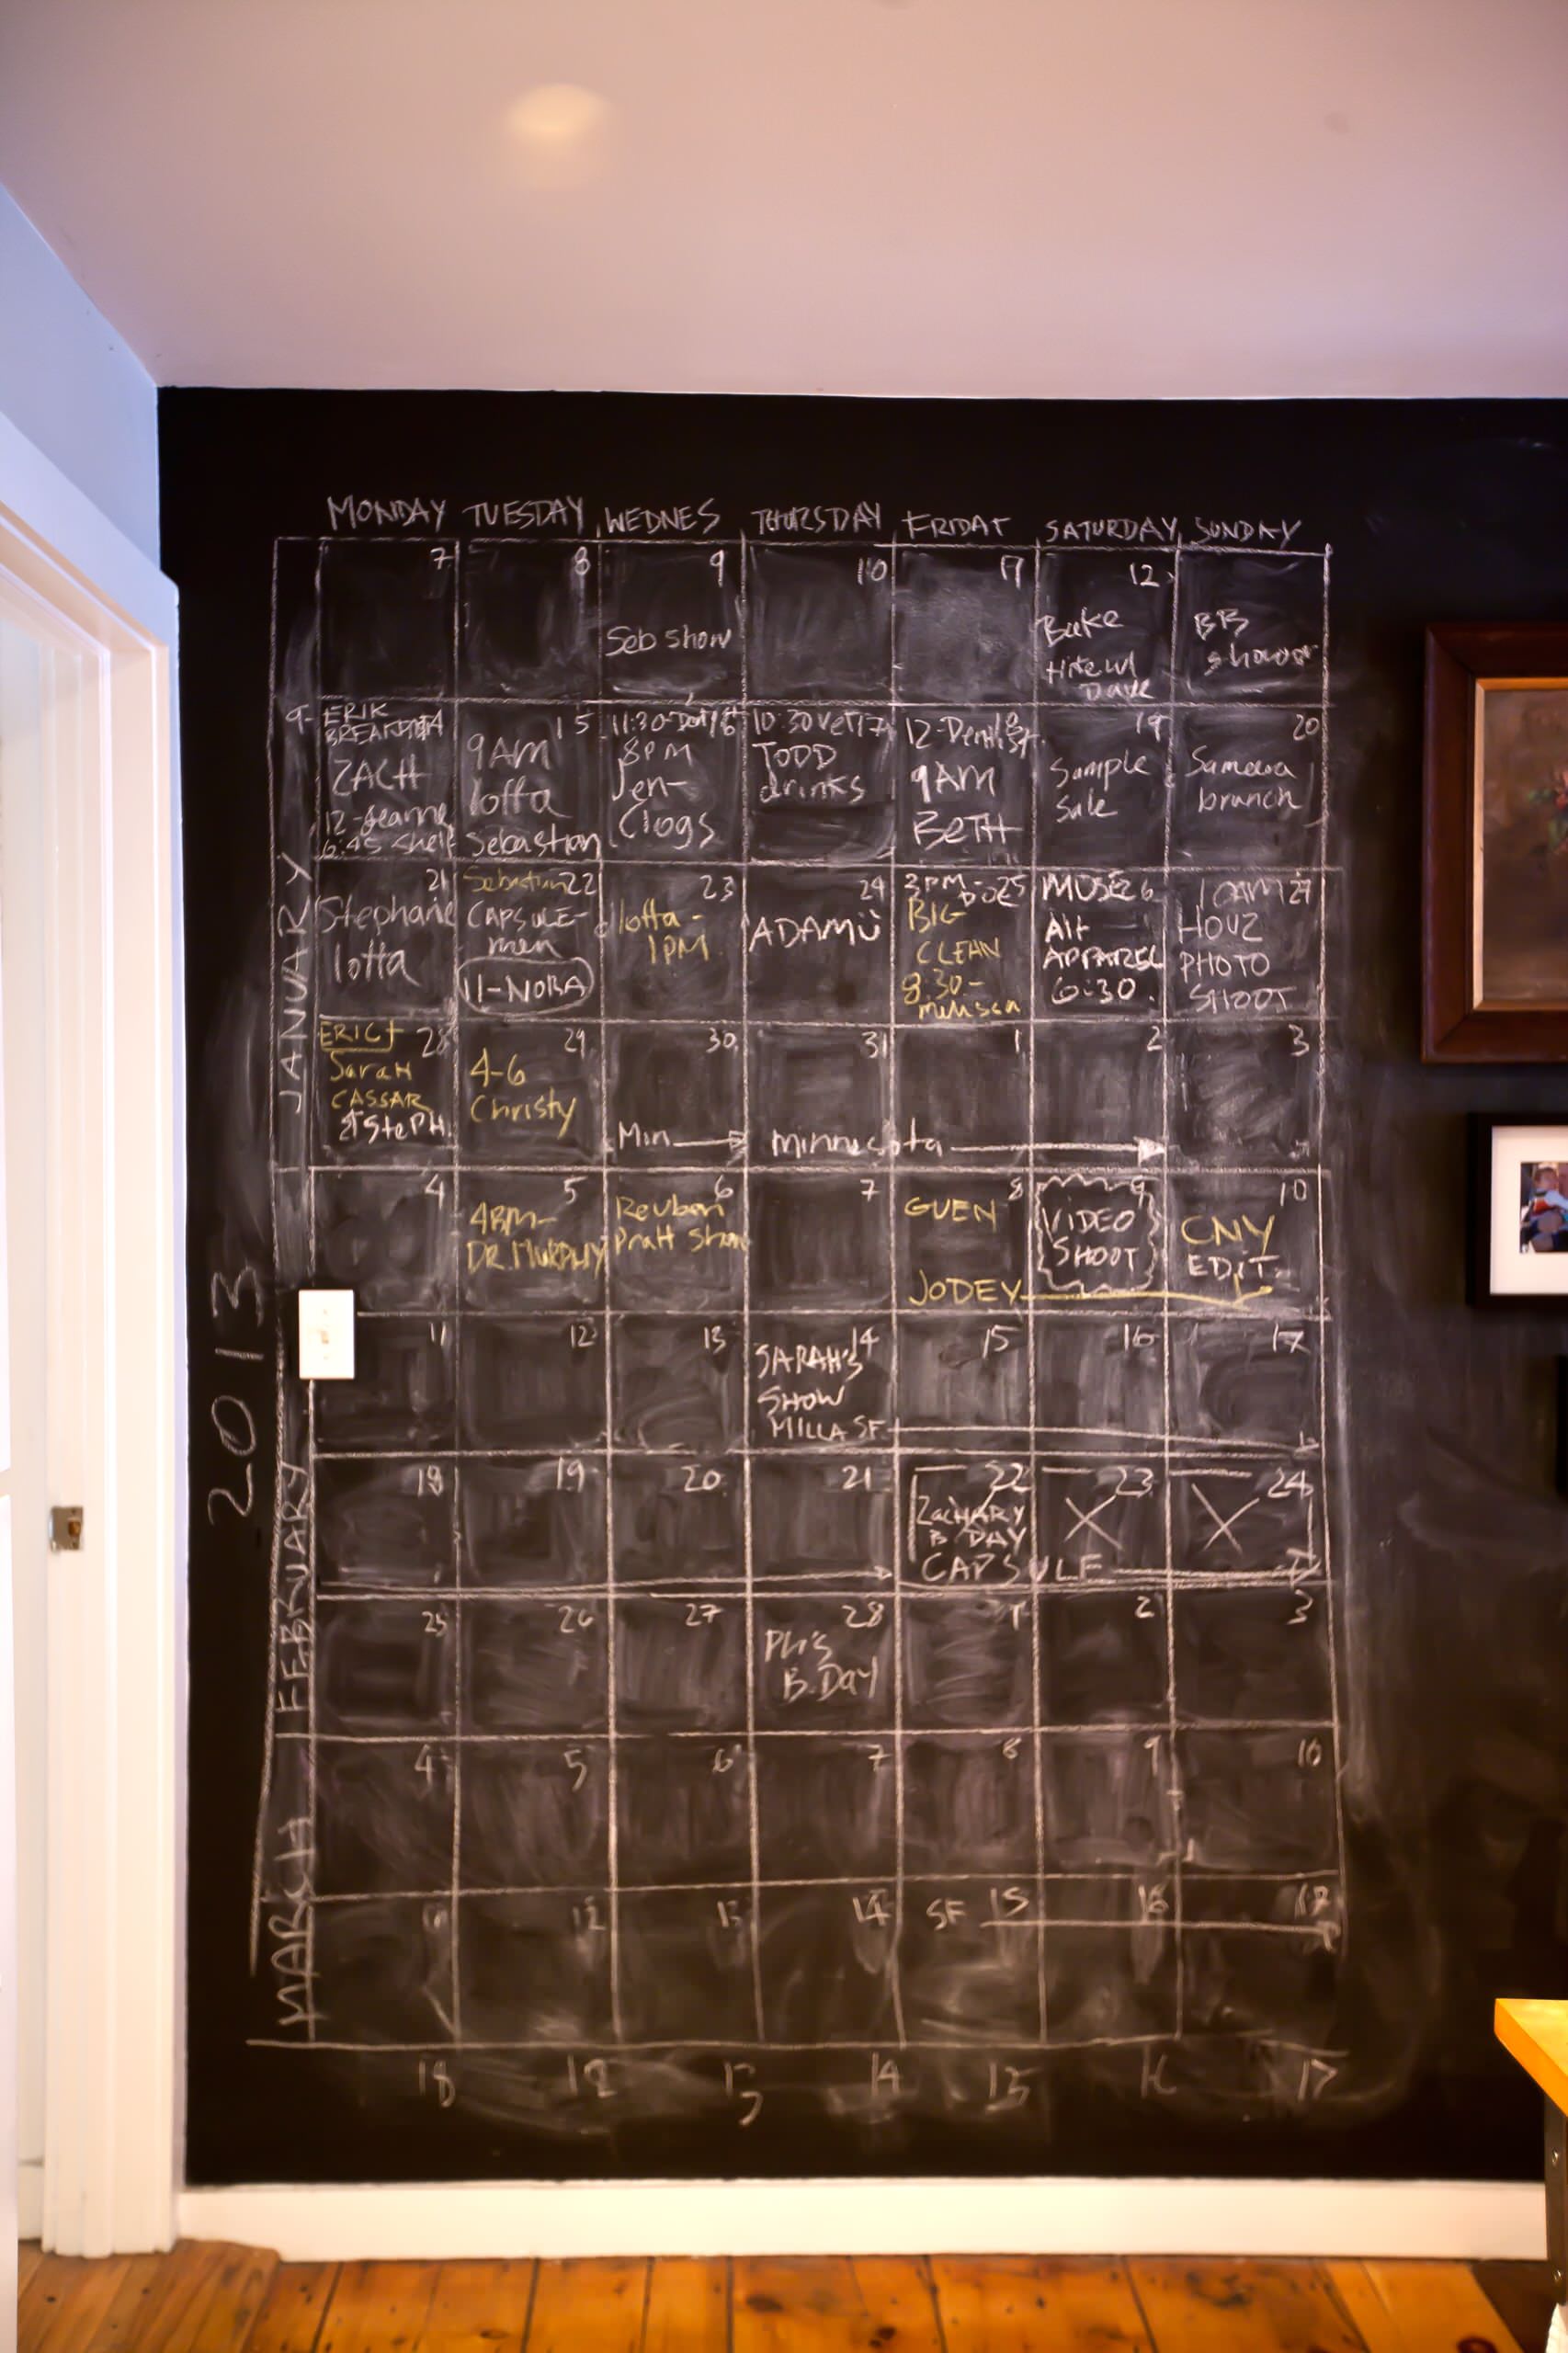 MONDAY TUESDAY WEDNES THURSDAY FRIDAY SATURDAY SUNDAY
2013
JANUARY
7
8
9
Seb show
10
11
12
Bake
Hike w/
Dave
BB
shower
9- ERIK
BREAKFAST 14
ZACH
12-Jeanne
6:45
15
9AM
lotta
Sebastian
11:30- 16
8PM
Jen-
Clogs
10:30 vet 17
TODD
drinks
12-Dentist 18
9AM
BETH
19
Sample
Sale
20
Samovar
brunch
21
Stephanie
lotta
Sebastian 22
CAPSULE-
men
11-NORA
23
lotta -
1PM
24
ADAM Ü
3PM- 25
BIG
CLEAN
8:30-
melissa
MUSE 26
Alt
APPAREL
6:30
10AM 27
HOUZ
PHOTO
SHOOT
ERIC 28
Sarah
CASSAR
& StePH.
29
4-6
Christy
30
Min
31
minnesota
1
2
3
FEBRUARY
4
5
4PM-
DR. MURPHY
6
Reuben
Pratt Show
7
8
GUEN
JODEY
9
VIDEO
SHOOT
10
CNY
EDIT
11
12
13
14
SARAH'S
SHOW
MILLA SF
15
16
17
18
19
20
21
22
ZACHARY
B DAY
CAPSULE
23
24
25
26
27
28
Ph's
B.Day
1
2
3
MARCH
4
5
6
7
8
9
10
11
12
13
14
SF 15
16
17
18
12
13
14
15
16
17